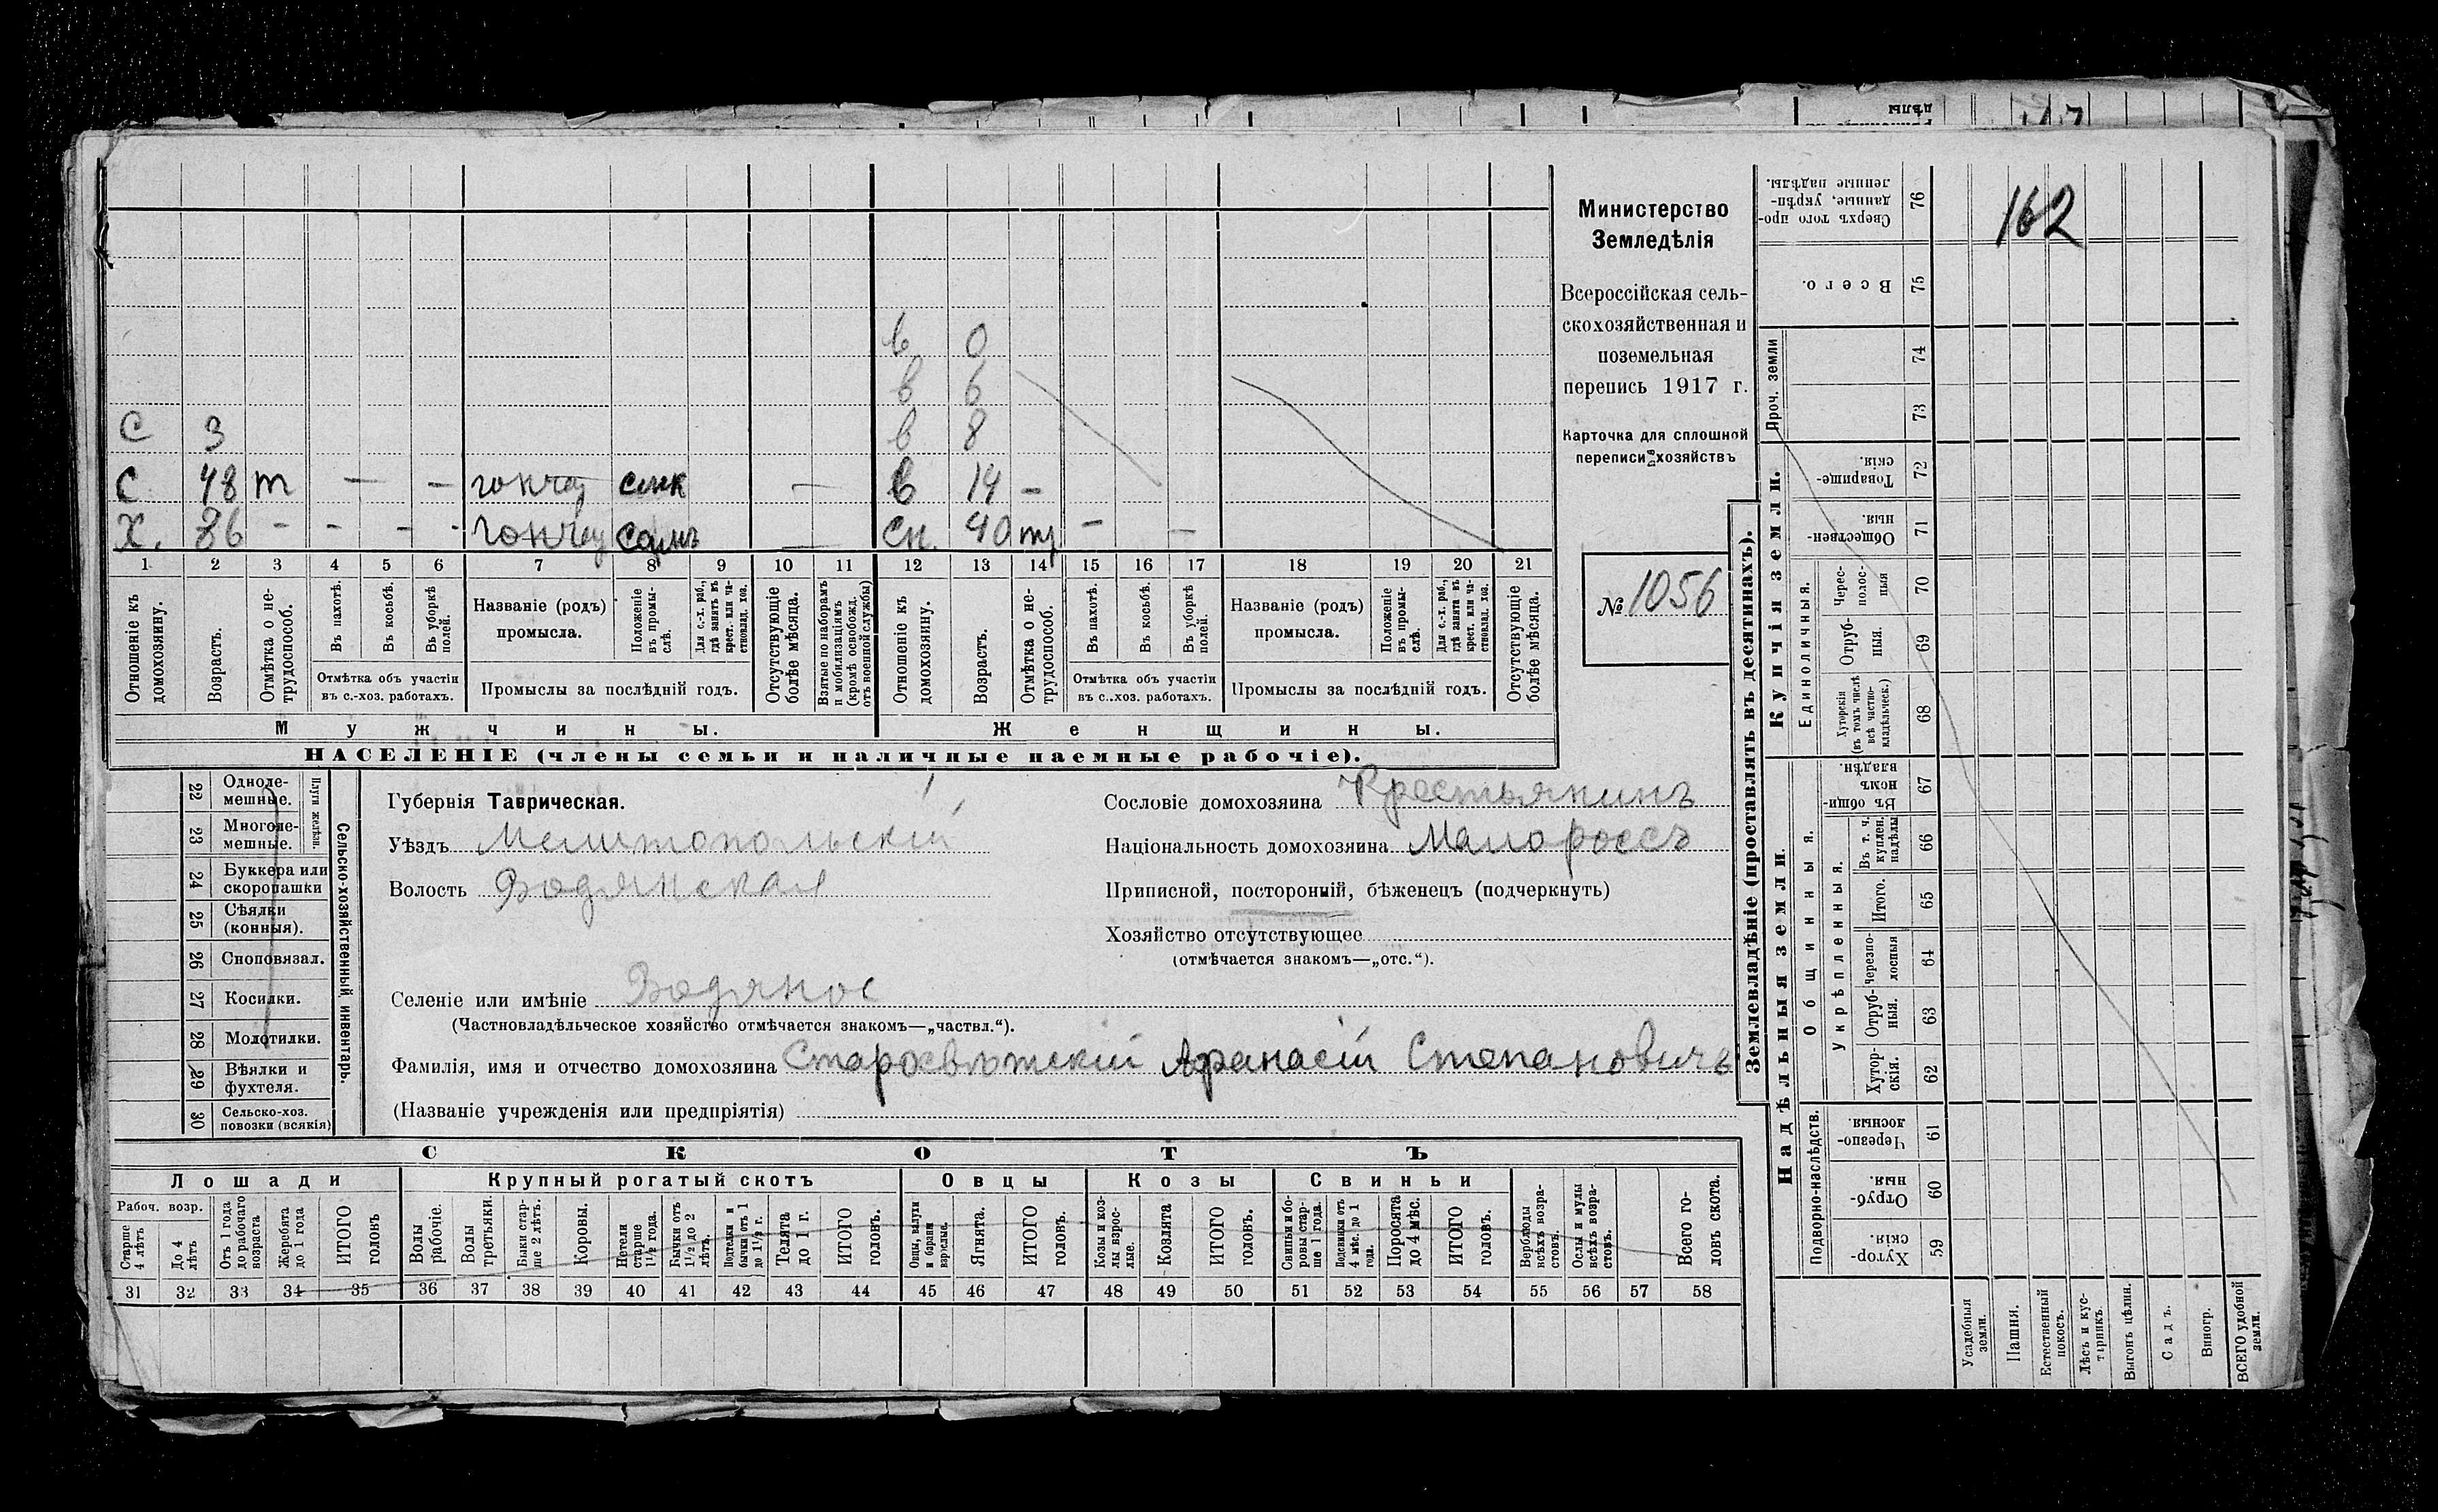 дѣлы
162
Министерство
Земледѣлія
Всероссійская сель-
скохозяйственная и
поземельная
перепись 1917 г.
Карточка для сплошной
переписи хозяйствъ
№ 1056
в 0
в 6
С 3 в 8
С 48 т — — гончар — в 14 —
Х. 86 - - - - гончар самъ — сн. 40 — —
1 2 3 4 5 6 7 8 9 10 11 12 13 14 15 16 17 18 19 20 21
Отношеніе къ домохозяину.
Возрастъ.
Отмѣтка о не-трудоспособ.
Въ пахотѣ.
Въ косьбѣ.
Въ уборкѣ полей.
Отмѣтка объ участіи
въ с.-хоз. работахъ.
Названіе (родъ)
промысла.
Положеніе въ промы-слѣ.
Для с.-х. раб., гдѣ занятъ въ крест. или ча-стновлад. хоз.
Промыслы за послѣдній годъ.
Отсутствующіе болѣе мѣсяца.
Взятые по наборамъ и мобилизаціямъ (кромѣ освобожд. отъ военной службы)
Отношеніе къ домохозяину.
Возрастъ.
Отмѣтка о не-трудоспособ.
Въ пахотѣ.
Въ косьбѣ.
Въ уборкѣ полей.
Отмѣтка объ участіи
въ с.-хоз. работахъ.
Названіе (родъ)
промысла.
Положеніе въ промы-слѣ.
Для с.-х. раб., гдѣ занята въ крест. или ча-стновлад. хоз.
Промыслы за послѣдній годъ.
Отсутствующіе болѣе мѣсяца.
Мужчины. Женщины.
НАСЕЛЕНІЕ (члены семьи и наличные наемные рабочіе).
22 Однолe-мешные.
23 Многоле-мешные.
Плуги желѣзн.
24 Буккера или скоропашки
25 Сѣялки (конныя).
26 Сноповязал.
27 Косилки.
28 Молотилки.
29 Вѣялки и фухтеля.
30 Сельско-хоз. повозки (всякія)
Сельско-хозяйственный инвентарь.
Губернія Таврическая.
Уѣздъ Мелитопольскій
Волость Водянская
Селеніе или имѣніе Водяное
(Частновладѣльческое хозяйство отмѣчается знакомъ—„частвл.“).
Фамилія, имя и отчество домохозяина Старосвѣтскій Афанасій Степановичъ
(Названіе учрежденія или предпріятія)
Сословіе домохозяина Крестьянинъ
Національность домохозяина Малороссъ
Приписной, посторонній, бѣженецъ (подчеркнуть)
Хозяйство отсутствующее
(отмѣчается знакомъ—„отс.“).
СКОТЪ
Лошади Крупный рогатый скотъ Овцы Козы Свиньи
Рабоч. возр.
Старше 4 лѣтъ
До 4 лѣтъ
Отъ 1 года до рабочаго возраста
Жеребята до 1 года
ИТОГО головъ
Волы рабочіе.
Волы третьяки.
Быки стар-ше 2 лѣтъ.
Коровы.
Нетели старше 1½ года.
Бычки отъ 1½ до 2 лѣтъ.
Подтелки и бычки отъ 1 до 1½ г.
Телята до 1 г.
ИТОГО головъ.
Овцы, валухи и бараны взрослые.
Ягнята.
ИТОГО головъ.
Козы и коз-лы взрос-лые.
Козлята
ИТОГО головъ.
Свиньи и бо-ровы стар-ше 1 года.
Подсвинки отъ 4 мѣс. до 1 года.
Поросята до 4 мѣс.
ИТОГО головъ.
Верблюды всѣхъ возра-стовъ.
Ослы и мулы всѣхъ возра-стовъ.
Всего го-ловъ скота.
31 32 33 34 35 36 37 38 39 40 41 42 43 44 45 46 47 48 49 50 51 52 53 54 55 56 57 58
Землевладѣніе (проставлять въ десятинахъ).
Надѣльныя земли.
Купчія земли.
Проч. земли
Подворно-наслѣдств.
Общинныя.
Укрѣпленныя.
Единоличныя.
76 Сверхъ того про-данные, укрѣп-ленные надѣлы.
75 Всего.
74
73
72 Товарище-скія.
71 Обществен-ныя.
70 Черес-полос-ныя
69 Отруб-ныя.
68 Хуторскія (въ томъ числѣ всѣ частно-владѣльческ.)
67 Въ общи-номъ владѣн.
66 Въ т. ч. куплен. надѣлы
65 Итого.
64 Черезпо-лосныя
63 Отруб-ныя.
62 Хутор-скія.
61 Черезпо-лосныя
60 Отруб-ныя.
59 Хутор-скія.
Усадебныя земли.
Пашня.
Естественный покосъ.
Лѣсъ и кус-тарникъ.
Выгонъ цѣлин.
Садъ.
Виногр.
ВСЕГО удобной земли.